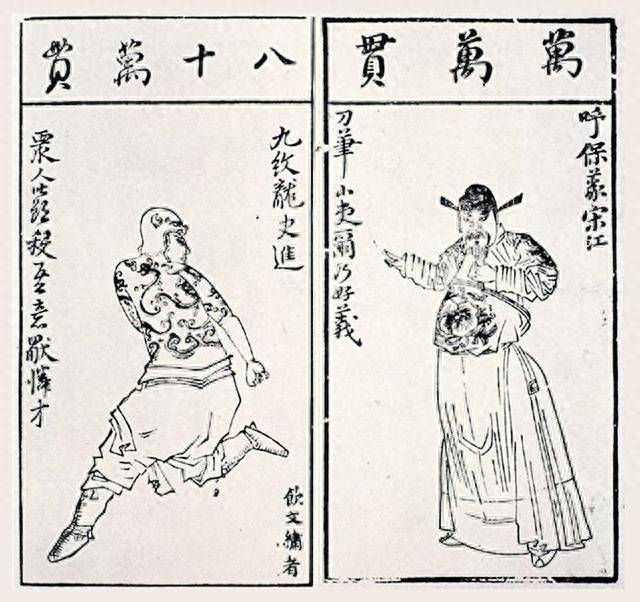 萬萬貫
呼保義宋江
刀筆小吏爾乃好義
八十萬貫
九紋龍史進
衆人皆欲殺吾意獨憐才
飲文繡者